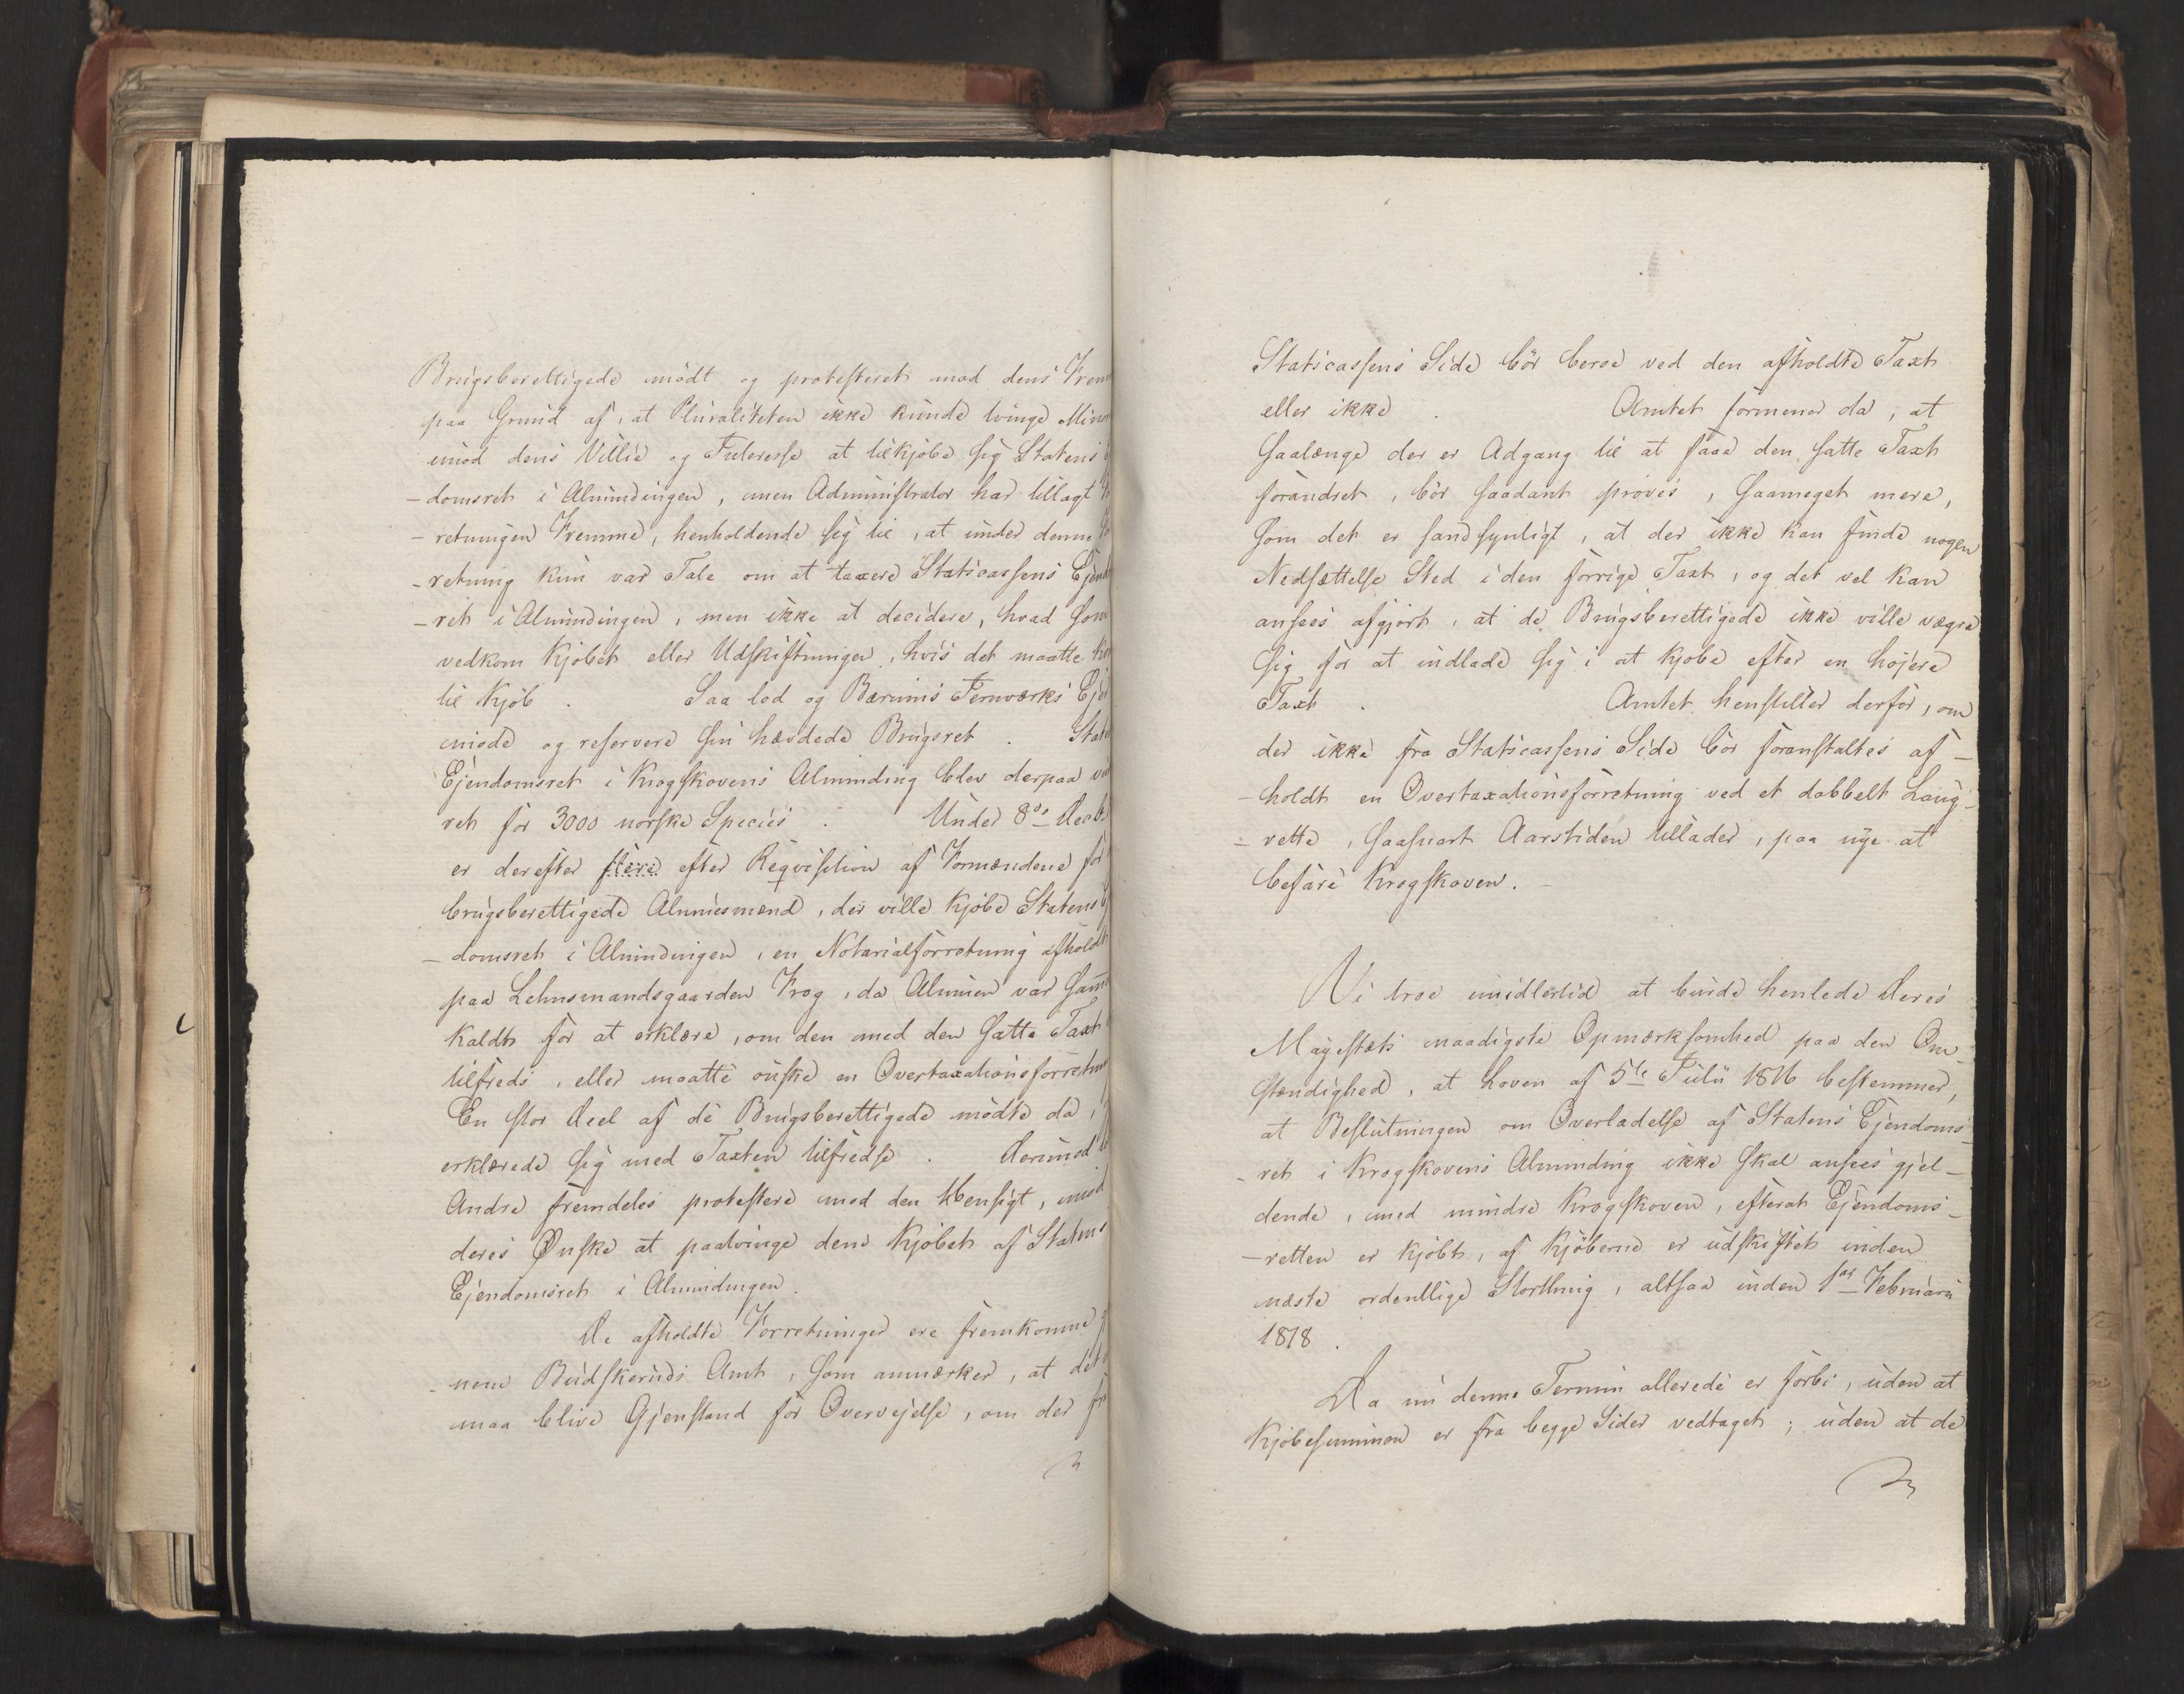 Brugsberettigede mödt og protesteret mod dens Frem
paa Grund af, at Pluraliteten ikke kunde tvinge Minor
imod dens Villie og Interesse at tilkjöbe sig Statens
-domsret i Almindingen, men Administrator har tillagt
-retningen Fremme, henholdende sig til, at under denne
-retning kun var Tale om at taxere Statscassens Ejend
-ret i Almindingen, men ikke at decidere, hvad som
vedkom Kjöbet eller Udskiftninger, hvis det maatte
til Kjöb. Saa lod og Bærums Jernværks
möde og reservere sin hævdede Brugsret. Stat
Ejendomsret i Krogskovens Alminding blev derpaa
ret for 3000 norske Species. Under 8de Decb.
er derefter flere efter Reqvisition af Formændene for
brugsberettigede Almuesmænd, der ville kjöbe Statens
-domsret i Almindingen, en Notarialforretning afholdt
paa Lehnsmandsgaarden Krog, da Almuen var sam̄
kaldt for at erklære, om den med den satte Taxt
tilfreds, eller maatte önske en Overtaxationsforretn
En stor Deel af de Brugsberettigede mödte da,
erklærede sig med Taxten tilfredse. Derimod
Andre fremdeles protestere mod den Hensigt, imod
deres Önske at paatvinge dem Kjöbet af Statens
Ejendomsret i Almindingen.
De afholdte Forretninger ere fremkomne
-nem Budskeruds Amt, som anmærker, at det
maa blive Gjenstand for Overvejelse, om der
Statscassens Side bör beroe ved den afholdte Taxt
eller ikke. Amtet formener da, at
saalænge der er Adgang til at faae den satte Taxt
forandret, bör saadant pröves, saameget mere,
som det er sandsynligt, at der ikke kan finde nogen
Nedsættelse Sted i den forrige Taxt, og det vel kan
ansees afgjort, at de Brugsberettigede ikke ville vægre
sig for at indlade sig i at kjöbe efter en höjere
Taxt. Amtet henstiller derfor, om
der ikke fra Statscassens Side bör foranstaltes af-
-holdt en Overtaxationsforretning ved et dobbelt Laug-
-rette, saasnart Aarstiden tillader, paa nye at
befare Krogskoven.
Vi troe imidlertid at burde henlede Deres
Majestæts naadigste Opmærksomhed paa den Om-
stændighed, at Loven af 5te Julii 1816 bestemmer,
at Beslutningen om Overladelse af Statens Ejendoms-
-ret i Krogskovens Alminding ikke skal ansees gjel-
dende, med mindre Krogskoven, efterat Ejendoms-
-retten er kjöbt, af Kjöberne er udskiftet inden
næste ordentlige Storthing, altsaa inden 1ste Februarii
1818.
Da nu denne Termin allerede er forbi, uden at
Kjöbesummen er fra begge Sider vedtaget; uden at de